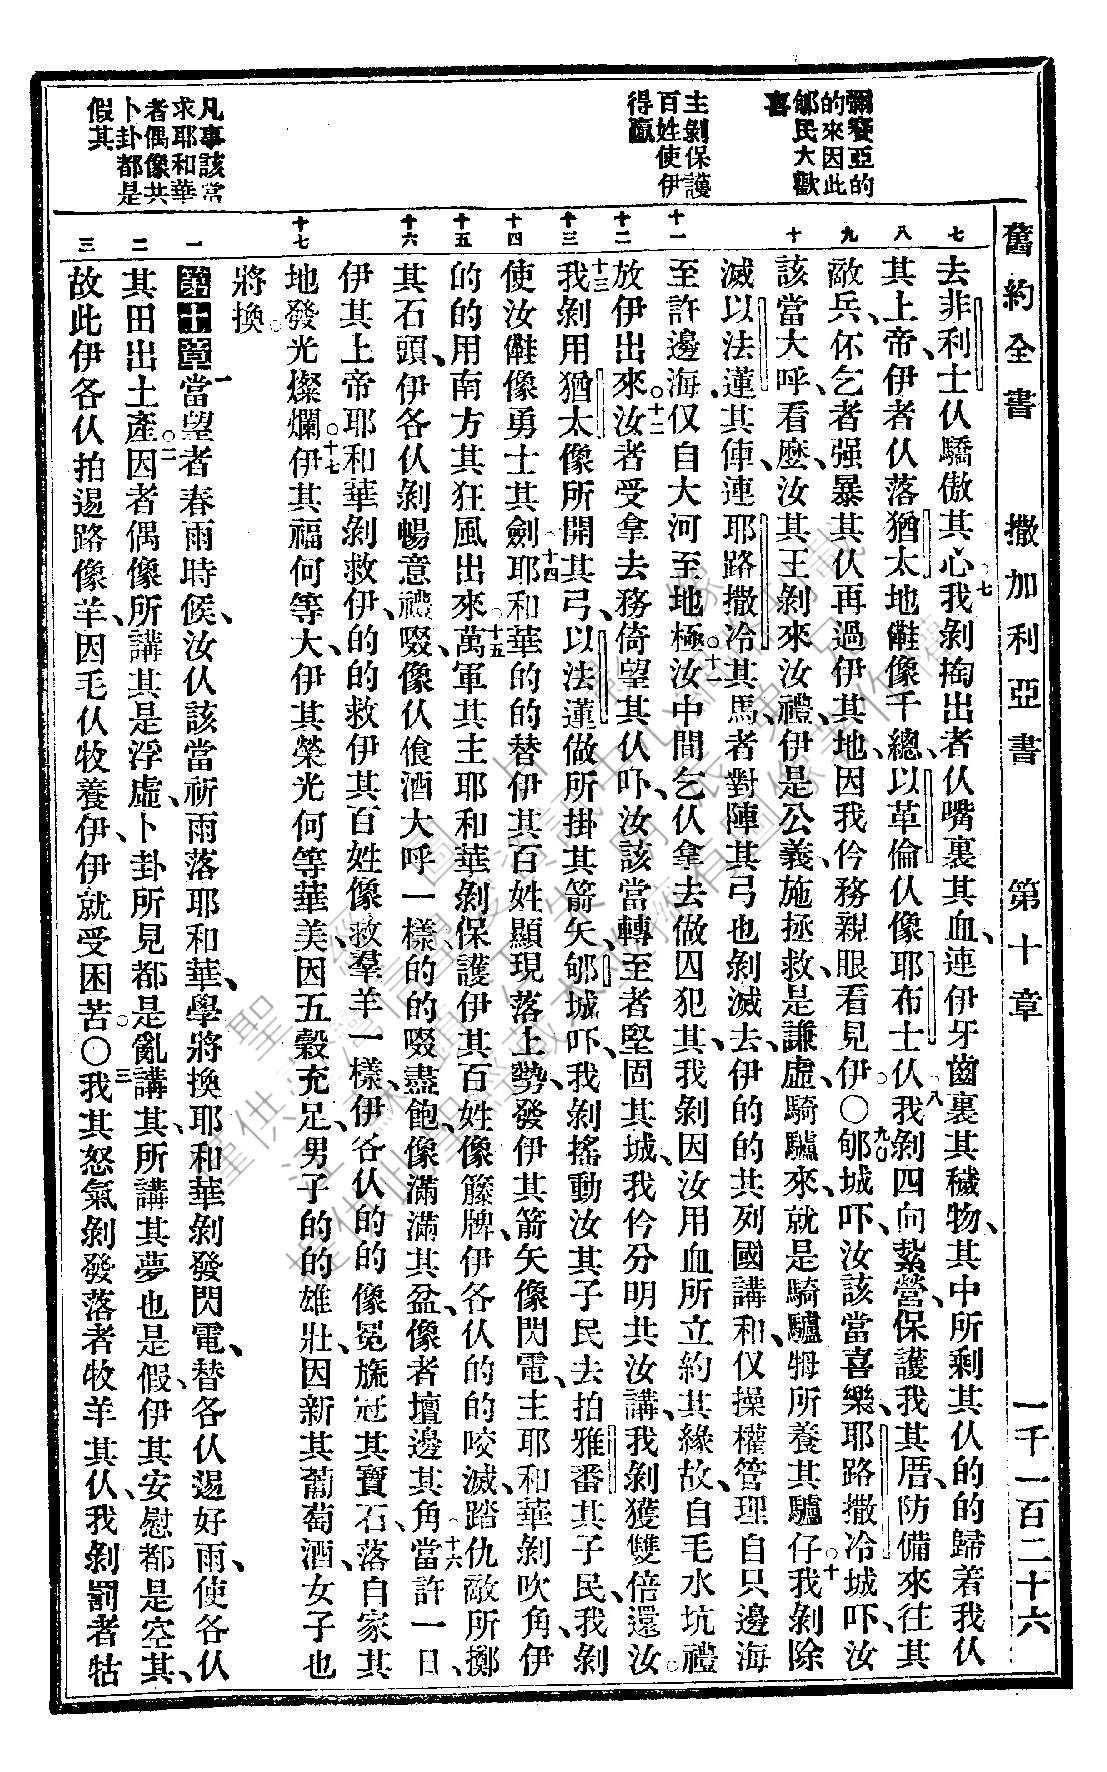 舊約全書　撒加利亞書　第十章　一千一百二十六
彌賽亞的
的來因此
郇民大歡
喜
主剝保護
百姓使伊
得贏
凡事該當
求耶和華
者偶像共
卜卦都是
假其
七
去非利士仈驕傲其心、七我剝掏出者仈嘴裏其血、連伊牙齒裏其穢物、其中所剩其仈的的歸着我仈
八
其上帝、伊者仈落猶太地、儺像千總、以革倫仈像耶布士仈、八我剝四向紮營、保護我其厝、防備來往其
九
敵兵、伓乞者强暴其仈再過伊其地、因我仱務親眼看見伊○九郇城吓、汝該當喜樂、耶路撒冷城吓、汝
十
該當大呼、看麽、汝其王剝來汝禮、伊是公義、施拯救、是謙虛、騎驢來、就是騎驢牳所養其驢仔○十我剝除
滅以法蓮其俥、連耶路撒冷其馬、者對陣其弓也剝滅去、伊的的共列國講和、仅操權管理自只邊海
十一
至許邊海、仅自大河至地極○十一汝中間乞仈拿去做囚犯其、我剝因汝用血所立約其緣故、自毛水坑禮
十二
放伊出來○十二汝者受拿去務倚望其仈吓、汝該當轉至者堅固其城、我仱分明共汝講、我剝獲雙倍還汝○
十三
十三我剝用猶太像所開其弓、以法蓮做所掛其箭矢、郇城吓、我剝搖動汝其子民、去拍雅番其子民、我剝
十四
使汝儺像勇士其劍、十四耶和華的的替伊其百姓顯現落上勢、發伊其箭矢像閃電、主耶和華剝吹角、伊
十五
的的用南方其狂風出來、十五萬軍其主耶和華剝保護伊其百姓像籐牌、伊各仈的的咬滅、踏仇敵所擲
十六
其石頭、伊各仈剝暢意禮啜、像仈飡酒大呼一樣、的的啜盡飽、像滿滿其盆、像者壇邊其角、十六當許一日、
伊其上帝耶和華剝救伊、的的救伊其百姓像救羣羊一樣、伊各仈的的像冕旒冠其寶石、落自家其
十七
地發光燦爛○十七伊其福何等大、伊其榮光何等華美、因五穀充足、男子的的雄壯、因新其葡萄酒、女子也
將換
一
第十章　一當望者春雨時候、汝仈該當祈雨落耶和華、學將換耶和華剝發閃電、替各仈逿好雨、使各仈
二
其田出土產○二因者偶像所講其是浮虛、卜卦所見都是亂講其、所講其夢也是假、伊其安慰都是空其、
三
故此伊各仈拍逿路像羊、因毛仈牧養伊、伊就受困苦○三我其怒氣剝發落者牧羊其仈、我剝罰者牯